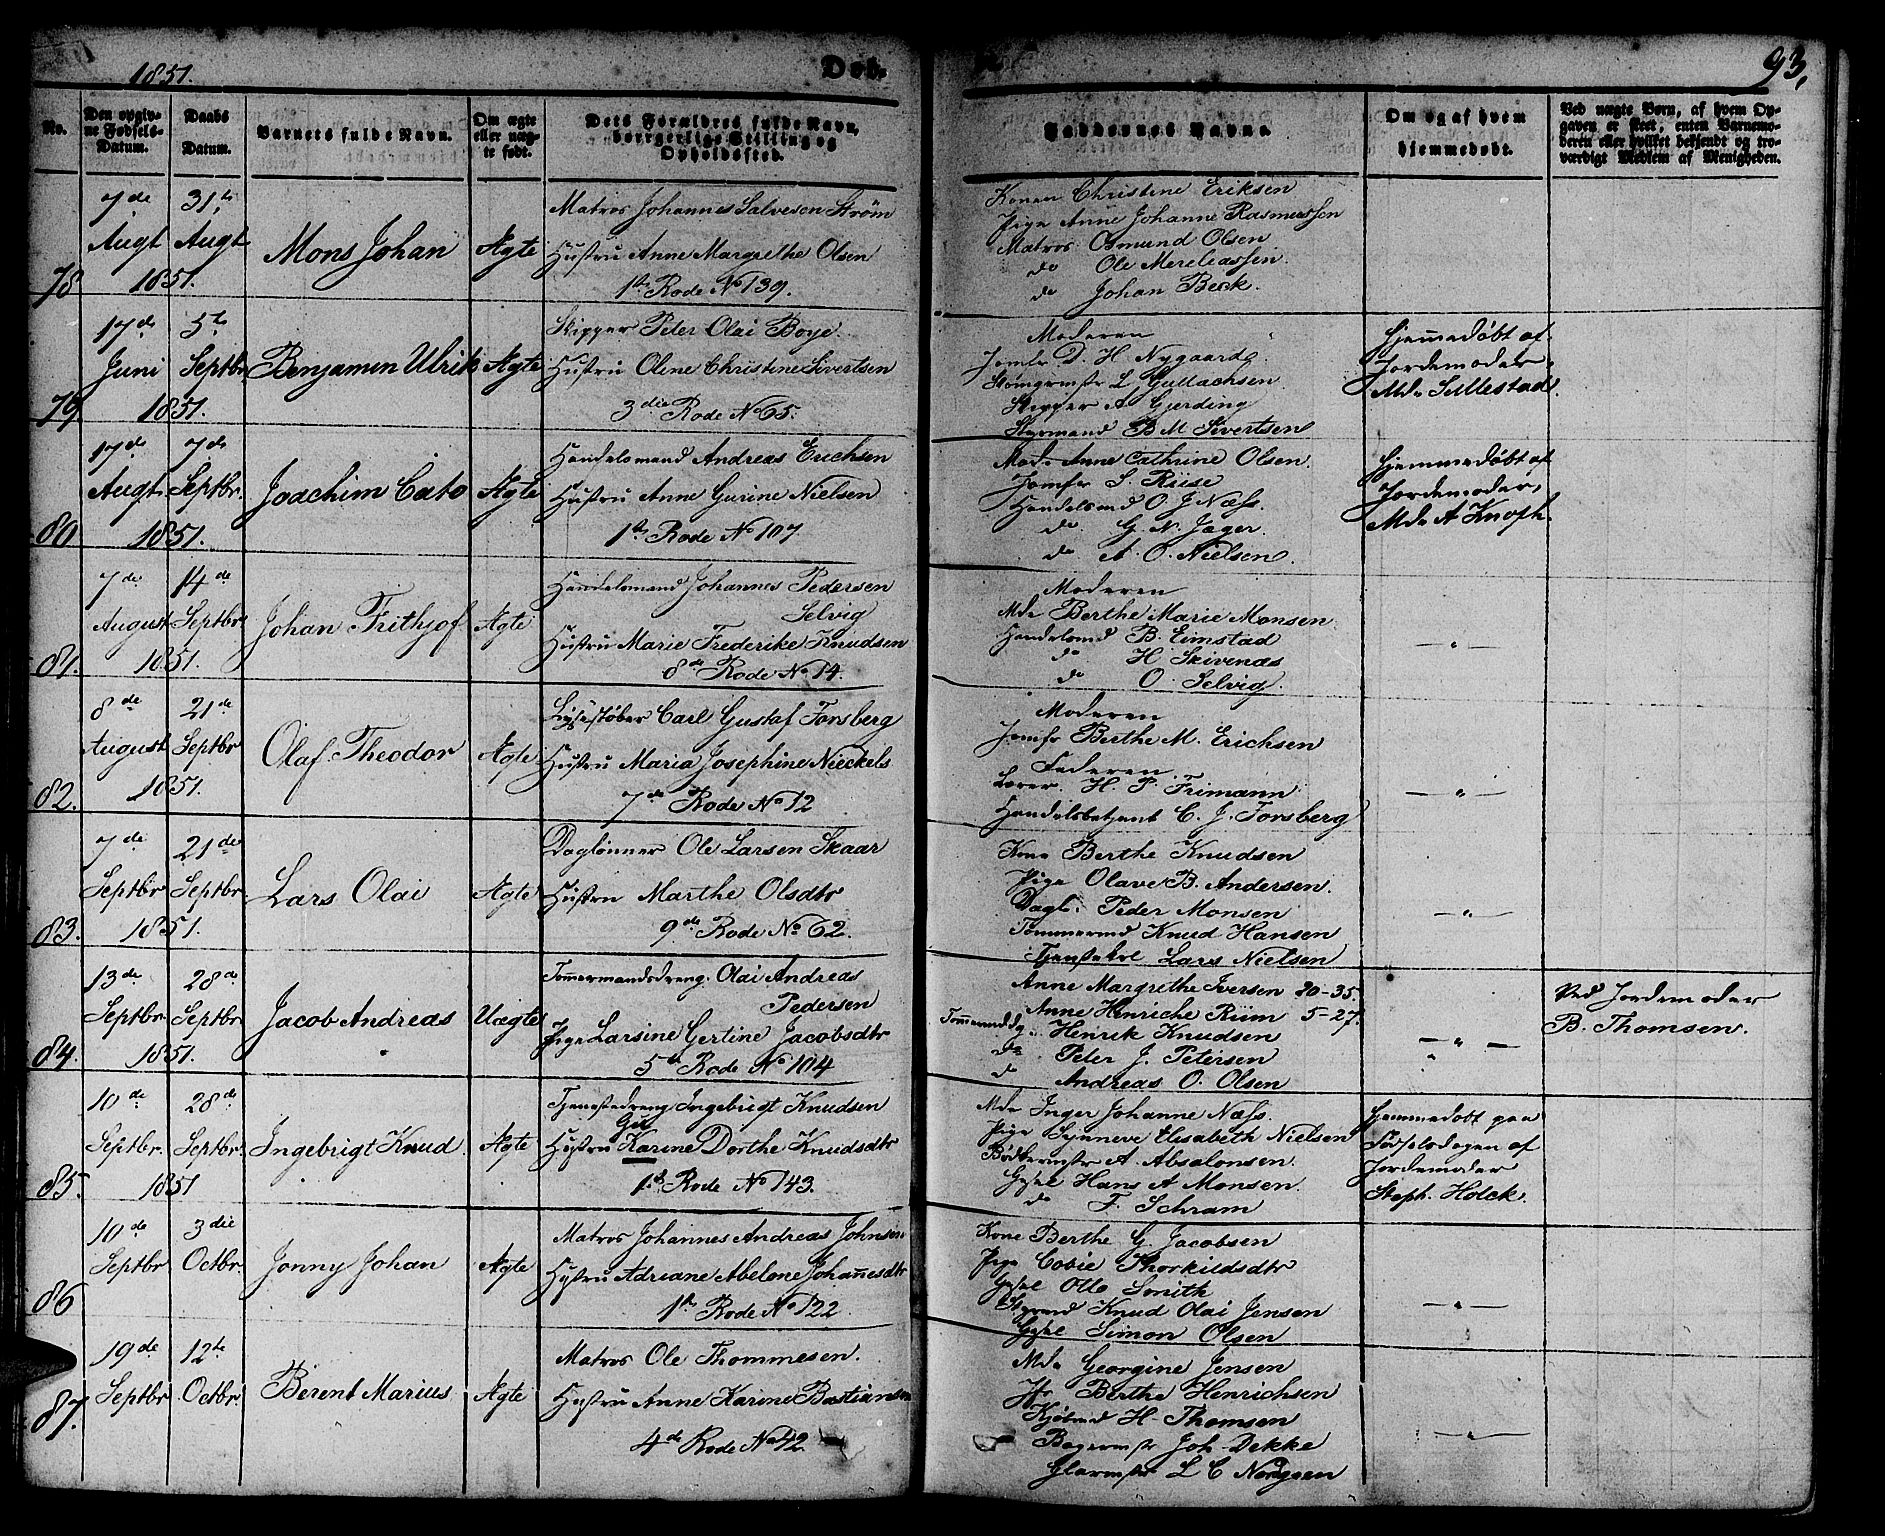 1851.
Døb.
93,
No.
Den opgiv-
ne Fødsels-
Datum.
Daabs
Datum.
Barnets fulde Navn.
Om ægte
eller uæg-
te født.
Dets Forældres fulde Navn,
borgerlige Stilling og
Opholdssted.
Faddernes Navne.
Om og af hvem
hjemmedøbt.
Ved uægte Børn, af hvem Op-
gaven er skeet, enten Barnemo-
deren eller hvilket bekjendt og tro-
værdigt Medlem af Menigheden.
78
7de Augt
31te Augt
1851.
Mons Johan
Ægte
Matros Johannes Salvesen Strøm
Hustru Anne Margrethe Olsen
1te Rode No 139.
Konen Christine Eriksen
Pige Anne Johanne Rasmussen
Matros Osmund Olsen
do Ole Mereliassen.
do Johan Beck.
79
17de Juni
5te Septbr
1851.
Benjamin Ulrik
Ægte
Skipper Peter Olai Boye.
Hustru Olene Christine Sivertsen
3die Rode No 65.
Moderen
Jomfr D. H. Nygaard.
L Gullachsen
Skipper A Gjerding
Styrmand B M Sivertsen
Hjemmedøbt af
Jordemoder
Md. Sillestad.
80
17de Augt
7de Septbr.
1851.
Joachim Cato
Ægte
Handelsmand Andreas Erichsen
Hustru Anne Gurine Nielsen
1te Rode No 107
Mad. Anne Cathrine Olsen.
Jomfr S. Riise
Handelsmd O. J Næss.
do G. N. Jæger.
do A. O. Nielsen.
Hjemmedøbt af
Jordemoder,
Md. A Knoph.
81.
7de August
14de Septbr
1851.
Johan Frithjof
Ægte
Handelsmand Johannes Pedersen
Selvig
Hustru Marie Frederike Knudsen
8de Rode No 14.
Moderen
Md. Berthe Marie Monsen
Handelsmd B. Eimstad
do H. Skivenæs
do O. Selvig.
— " —
82.
8de August
21de Septbr
1851.
Olaf Theodor
Ægte
Lysestøber Carl Gustaf Forsberg
Hustru Maria Josephine Nieckels
7de Rode No 12
Moderen
Jomfr Berthe M. Erichsen
Faderen
Lærer H. P. Frimann
Handelsbetjent C. J. Forsberg
— " —
83.
7de Septbr
21de Septbr
1851.
Lars Olai
Ægte
Daglønner Ole Larsen Skaar
Hustru Marthe Olsdtr
9de Rode No 62.
Kone Berthe Knudsen
Pige Olave B. Andersen.
Dagl. Peder Monsen
Tømmermd Knud Hansen
Tjenstekrl Lars Nielsen
— " —
84.
13de Septbr
28de Septbr
1851.
Jacob Andreas
Uægte
Tømermandsdreng. Olai Andreas
Pedersen
Pige Larsine Gertine Jacobsdtr
5te Rode No 104
Anne Margrethe Iversen 20-35.
Anne Henriche Riim 5-27.
Tømermddg. Henrik Knudsen
do Peter J. Petersen
do Andreas O. Olsen
— " —
"
Ved Jordemoder
B. Thomsen.
85.
10de Septbr.
28de Septbr.
1851
Ingebrigt Knud
Ægte
Tjenestedreng Ingebrigt Knudsen
Gu
Hustru Karine Dorthe Knudsdtr
1te Rode No 143.
Md. Inger Johanne Næss.
Pige Synneve Elisabeth Nielsen
Bødkermstr A. Absalonsen.
Gysel Hans A Monsen.
do F. Schram
Hjemmedøbt paa
Fødselsdagen af
Jordemoder
Steph. Holck.
86
10de Septbr
3die Octbr.
Jonny Johan
Ægte
Matros Johannes Andreas Johnsen
Hustru Adriane Abelone Johannesdtr
1te Rode No 122.
Kone Berthe G. Jacobsen
Pige Cobie Thorkildsdtr
Otto Smith
Styrmd Knud Olai Jensen
Simon Olsen
— " —
87.
19de Septbr
12te Octbr.
Berent Marius
Ægte
Matros Ole Thommesen.
Hustru Anne Karine Bastiansen
4de Rode No 42
Md. Georgine Jensen
Jfr Berthe Henrichsen
Kjøbmd H. Thomsen
Bagermstr Joh. Dekke
Glarmstr L C Norgreen
— " —